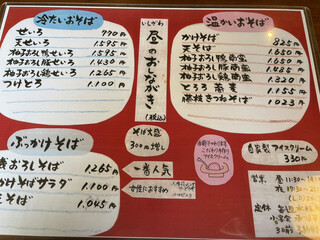 冷たいおそば
せいろ 770円
天せいろ 1.595円
柚子おろし鴨せいろ 1.595円
柚子おろし豚せいろ 1.430円
柚子おろし鶏せいろ 1.265円
つけとろ 1.100円
いしがわ
昼のおしながき
(税込)
温かいおそば
かけそば 825円
天そば 1.650円
柚子おろし鴨南蛮 1.650円
柚子おろし豚南蛮 1.485円
柚子おろし鶏南蛮 1.320円
とろろ蕎麦 1.155円
藤枝きつねそば 1023円
ぶっかけそば
おろしそば 1.265円
かけそばサラダ 1.100円
そば 1.045円
そば大盛
300円増し
一番人気
女性におすすめ
こだわり作り
アイスクリーム
自家製アイスクリーム
330円
営業 昼 11:30~
定休